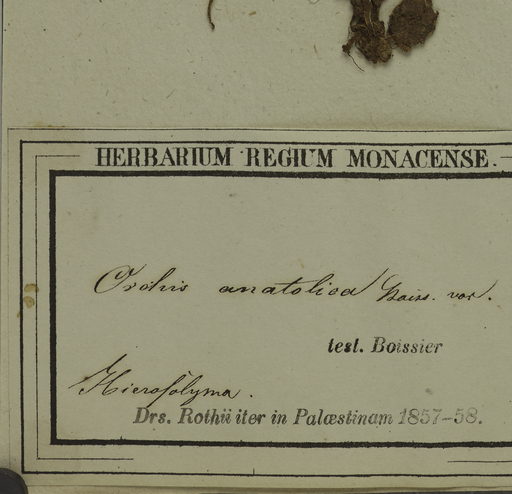 HERBARIUM REGIUM MONACENSE.
Orchis anatolica Boiss. var.
test. Boissier
Hierosolyma.
Drs. Rothii iter in Palæstinam 1857-58.